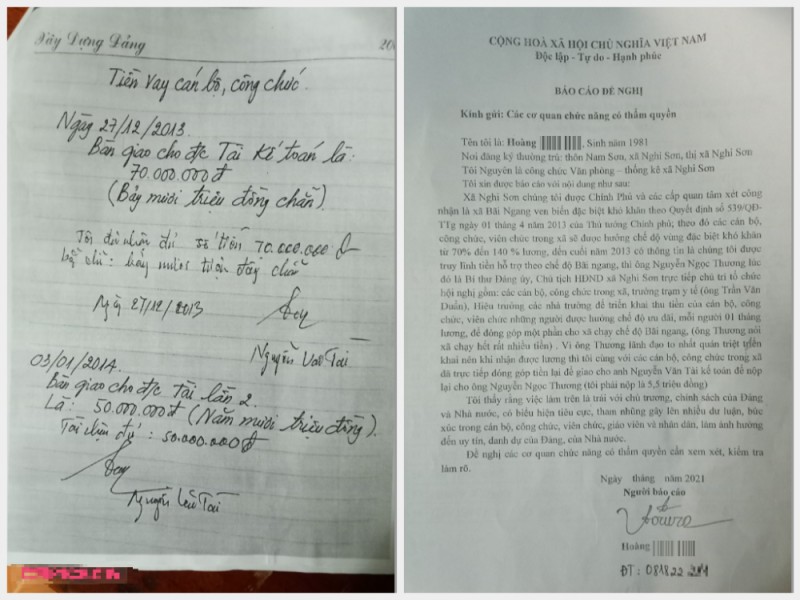 Xây Dựng Đảng
Tiền vay cán bộ, công chức.
Ngày 27/12/2013.
Bàn giao cho đ/c Tài kế toán là:
70.000.000đ
(Bảy mươi triệu đồng chẵn).
Tôi đã nhận đủ số tiền 70.000.000đ
chữ: bảy mươi triệu đồng chẵn
Ngày 27/12/2013
Nguyễn Văn Tài
03/01/2014.
Bàn giao cho đ/c Tài lần 2.
Là: 50.000.000đ (Năm mươi triệu đồng).
Tài nhận đủ: 50.000.000đ
Nguyễn Văn Tài
CỘNG HOÀ XÃ HỘI CHỦ NGHĨA VIỆT NAM
Độc lập - Tự do - Hạnh phúc
BÁO CÁO ĐỀ NGHỊ
Kính gửi: Các cơ quan chức năng có thẩm quyền
Tên tôi là: Hoàng , Sinh năm 1981
Nơi đăng ký thường trú: thôn Nam Sơn, xã Nghi Sơn, thị xã Nghi Sơn
Tôi Nguyên là công chức Văn phòng – thống kê xã Nghi Sơn
Tôi xin được báo cáo với nội dung như sau:
Xã Nghi Sơn chúng tôi được Chính Phủ và các cấp quan tâm xét công
nhận là xã Bãi Ngang ven biển đặc biệt khó khăn theo Quyết định số 539/QĐ-
TTg ngày 01 tháng 4 năm 2013 của Thủ tướng Chính phủ; theo đó các cán bộ,
công chức, viên chức trong xã sẽ được hưởng chế độ vùng đặc biệt khó khăn
từ 70% đến 140 % lương, đến cuối năm 2013 có thông tin là chúng tôi được
truy lĩnh tiền hỗ trợ theo chế độ Bãi ngang, thì ông Nguyễn Ngọc Thương lúc
đó là Bí thư Đảng ủy, Chủ tịch HĐND xã Nghi Sơn trực tiếp chủ trì tổ chức
hội nghị gồm: các cán bộ, công chức trong xã, trưởng trạm y tế (ông Trần Văn
Duẩn), Hiệu trưởng các nhà trường để triển khai thu tiền của cán bộ, công
chức, viên chức những người được hưởng chế độ ưu đãi, mỗi người 01 tháng
lương, để đóng góp một phần cho xã chạy chế độ Bãi ngang, (ông Thương nói
xã chạy hết rất nhiều tiền) . Vì ông Thương lãnh đạo to nhất quán triệt triển
khai nên khi nhận được lương thì tôi cùng với các cán bộ, công chức trong xã
đã trực tiếp đóng góp tiền lại để giao cho anh Nguyễn Văn Tài kế toán để nộp
lại cho ông Nguyễn Ngọc Thương (tôi phải nộp là 5,5 triệu đồng)
Tôi thấy rằng việc làm trên là trái với chủ trương, chính sách của Đảng
và Nhà nước, có biểu hiện tiêu cực, tham nhũng gây lên nhiều dư luận, bức
xúc trong cán bộ, công chức, viên chức, giáo viên và nhân dân, làm ảnh hưởng
đến uy tín, danh dự của Đảng, của Nhà nước.
Đề nghị các cơ quan chức năng có thẩm quyền cần xem xét, kiểm tra
làm rõ.
Ngày tháng năm 2021
Người báo cáo
Hoàng
ĐT: 081822